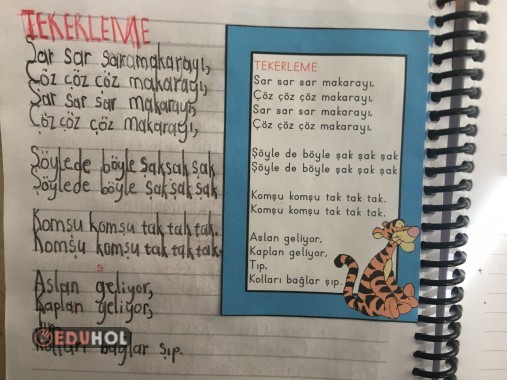 TEKERLEME
Sar sar saramakarayı,
Çöz çöz çöz makarayı,
Sar sar sar makarayı,
Çöz çöz çöz makarayı,
Şöylede böyle şakşakşak
Şöylede böyle şakşakşak
Komşu komşu tak tak tak.
Komşu komşu tak tak tak.
Aslan geliyor,
Kaplan geliyor,
Kolları bağlar şıp.
EDUHOL
TEKERLEME
Sar sar sar makarayı,
Çöz çöz çöz makarayı,
Sar sar sar makarayı,
Çöz çöz çöz makarayı,
Şöyle de böyle şak şak şak
Şöyle de böyle şak şak şak
Komşu komşu tak tak tak.
Komşu komşu tak tak tak.
Aslan geliyor,
Kaplan geliyor,
Tıp,
Kolları bağlar şıp.